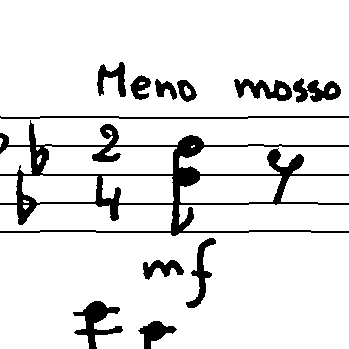 Meno mosso
2
4
mf